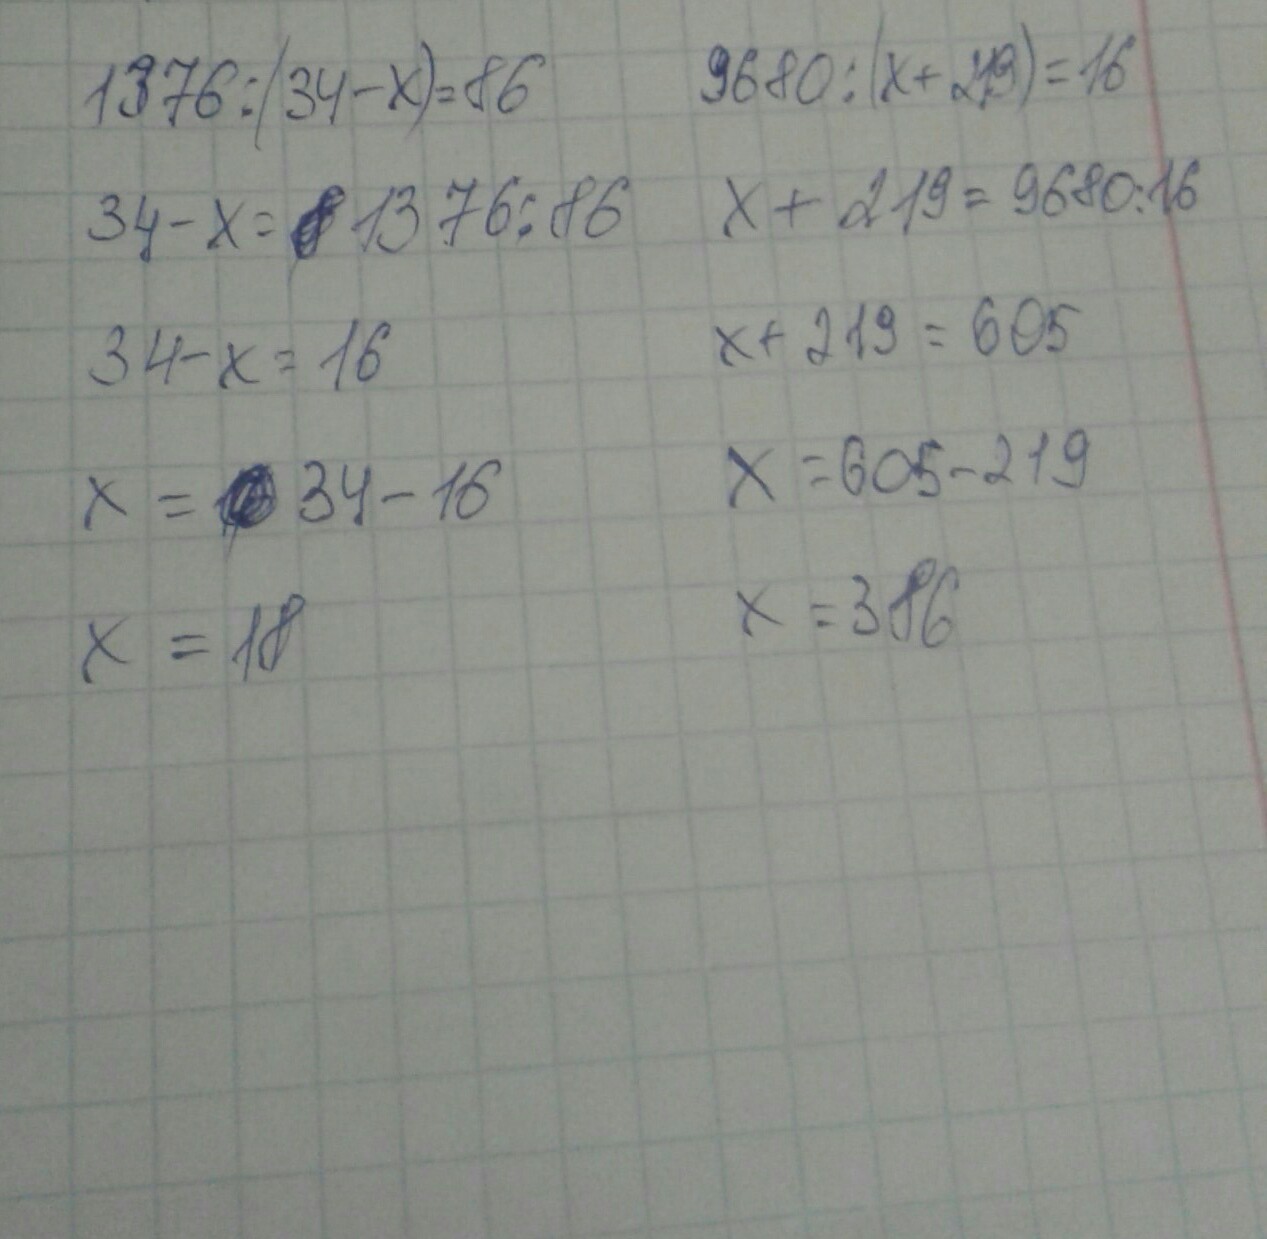 1376:(34-x)=86
34-x=1376:86
34-x=16
x=34-16
x=18
9680:(x+219)=16
x+219=9680:16
x+219=605
x=605-219
x=386